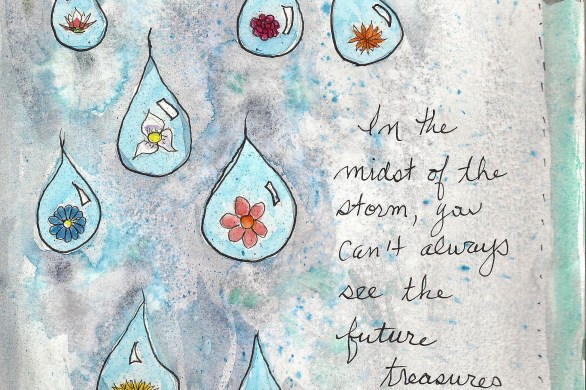 In the
midst of the
storm, you
can't always
see the
future
treasures